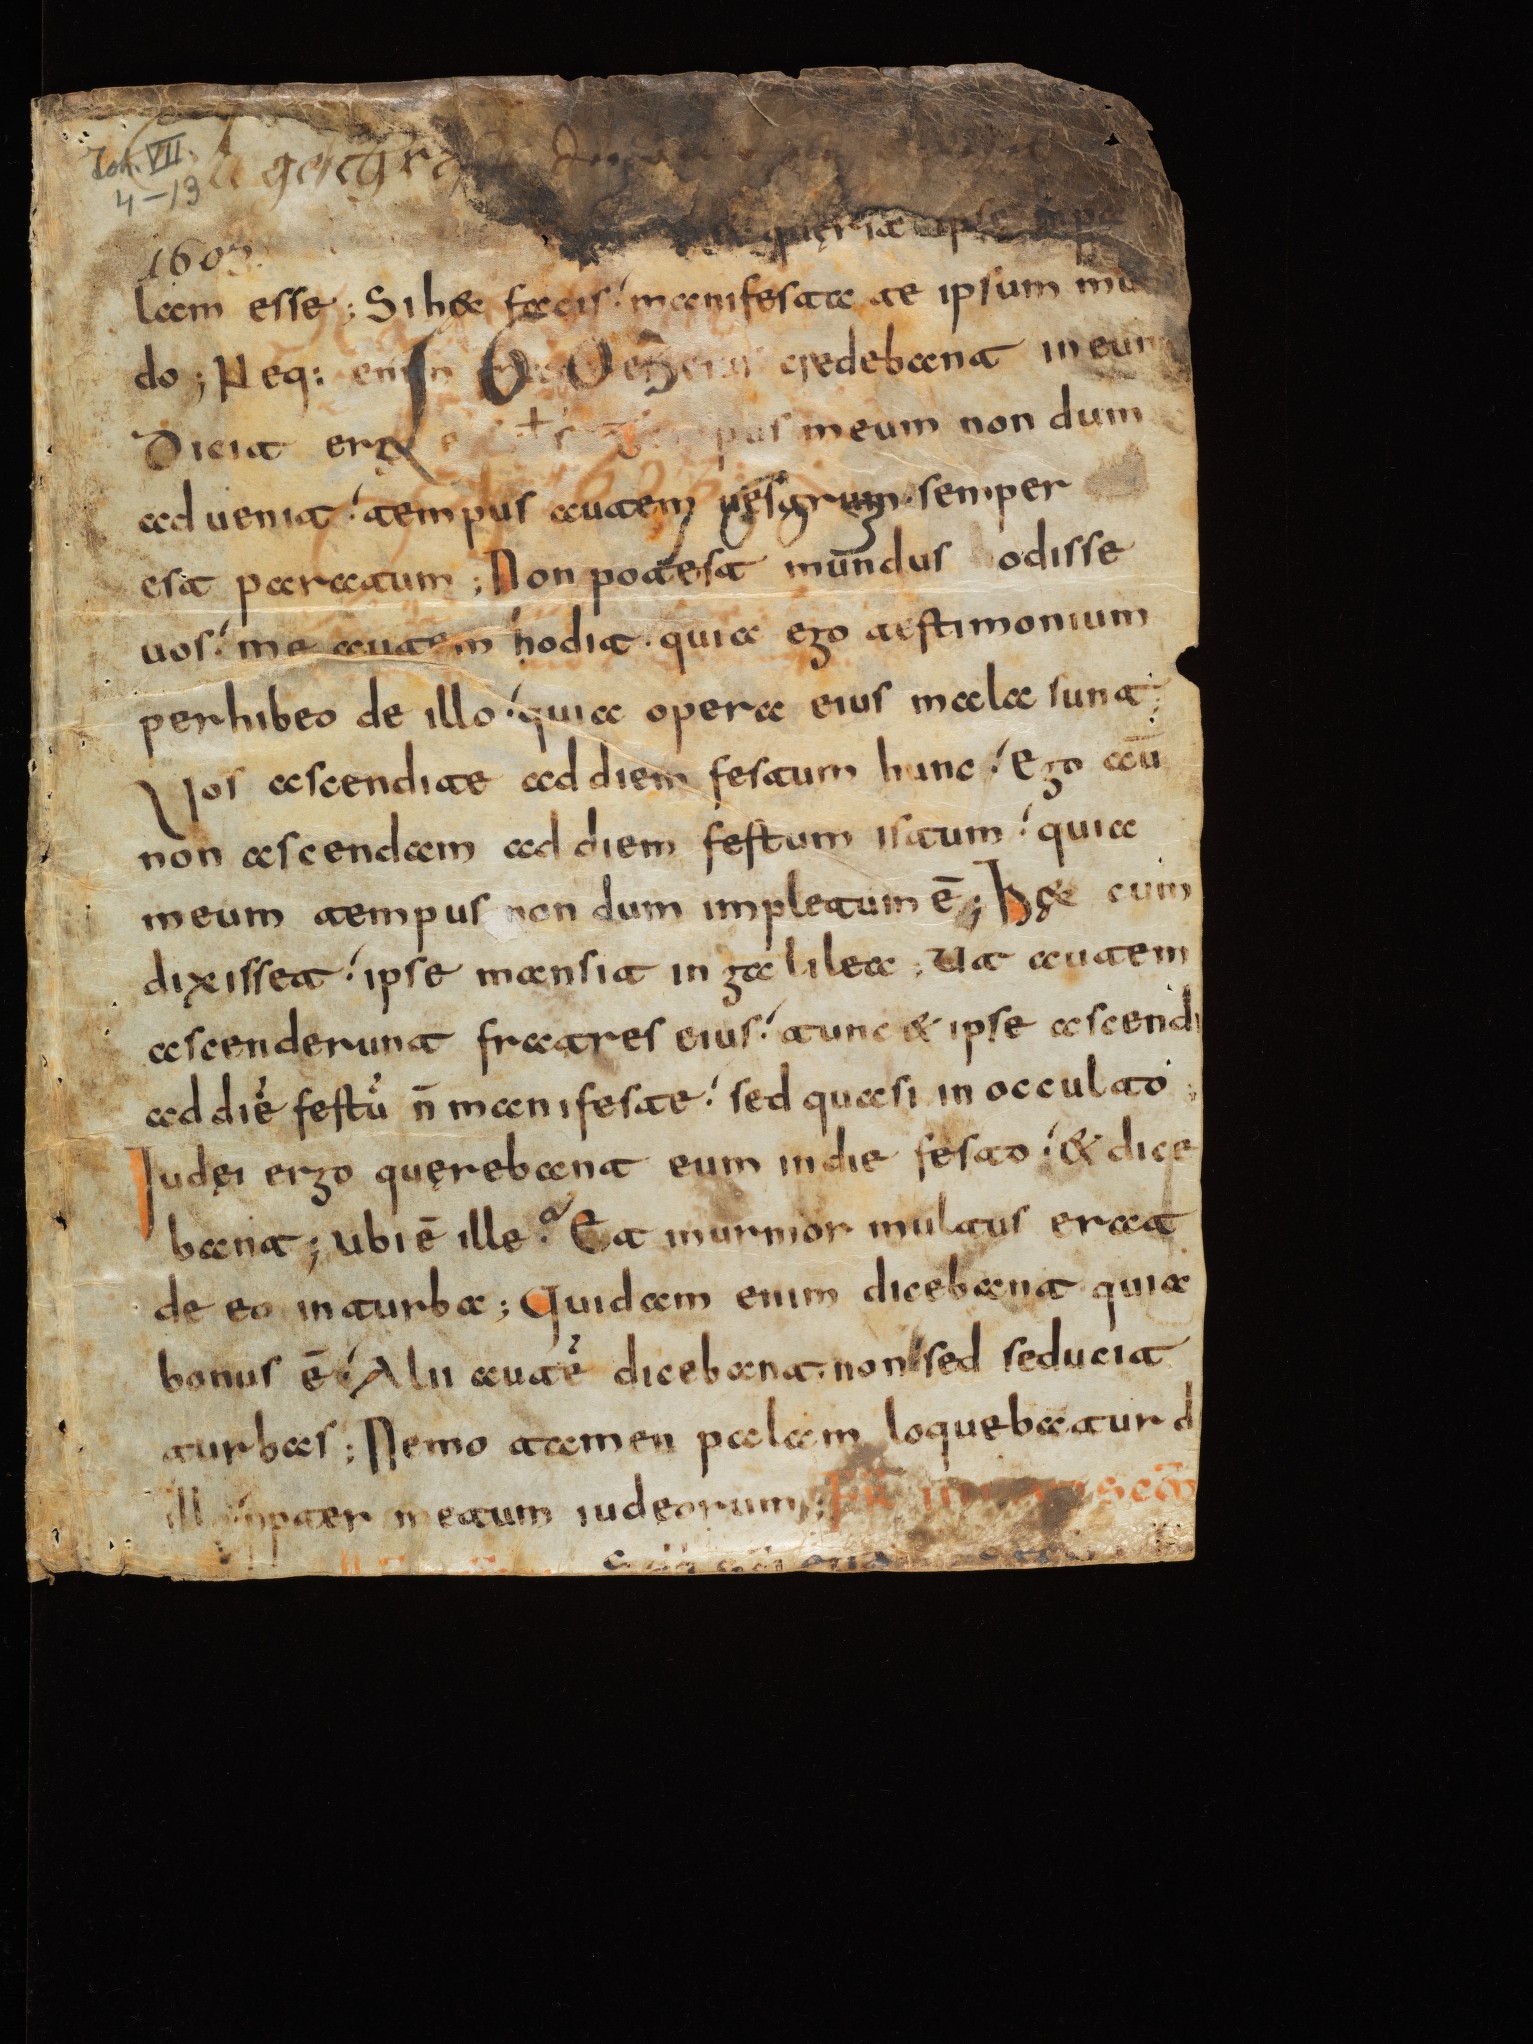 Joh. VII.
4–13
1603
& quęrit ipse
lam esse; Si hęc facis. manifesta te ipsum mu
do; Neq: enim credebant in eum
Dicit ergo tempus meum non dum
aduenit. tempus autem uestrum semper
est paratum; Non potest mundus odisse
uos. me autem hodit. quia ego testimonium
perhibeo de illo. quia opera eius mala sunt;
Vos ascendite ad diem festum hunc. Ego aū
non ascendam ad diem festum istum. quia
meum tempus non dum impletum ē; Hęc cum
dixisset. ipse mansit in galilea; Ut autem
ascenderunt fratres eius. tunc & ipse ascendi
ad diē festū n̄ manifeste. sed quasi in occulto;
Iudęi ergo quęrebant eum in die festo. & dice
bant; ubi ē ille? Et murmor multus erat
de eo in turba; Quidam enim dicebant quia
bonus ē. Alii autē dicebant. non. sed seducit
turbas; Nemo tamen palam loquebatur d
illo. ꝓpter metum iudęorum;